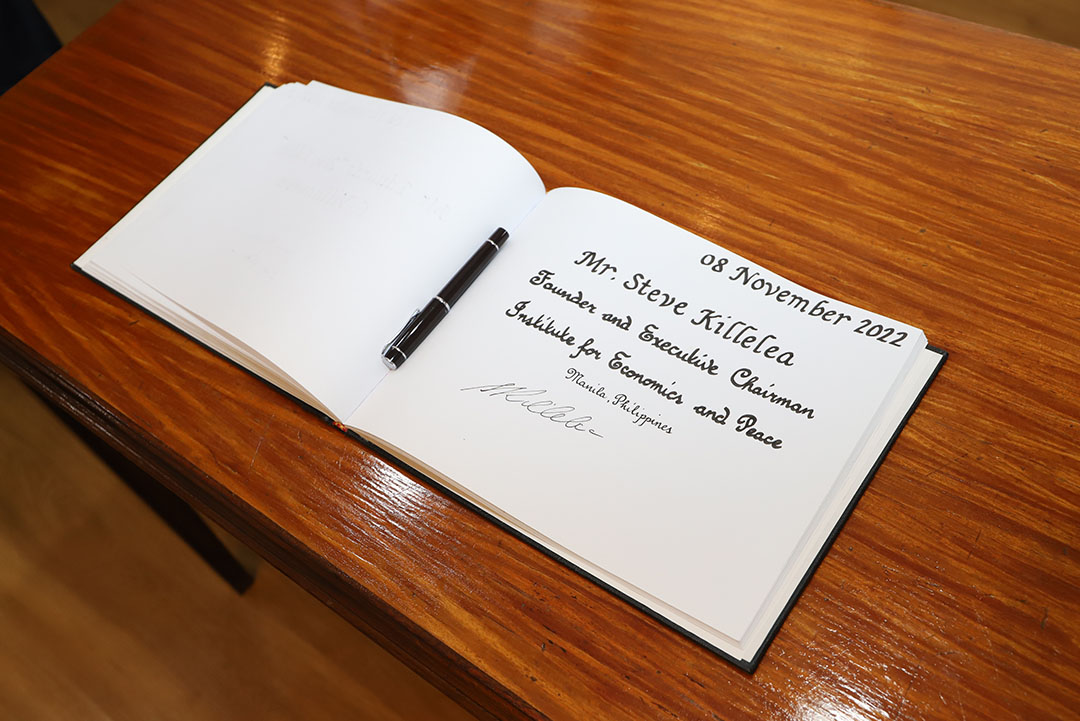 08 November 2022
Mr. Steve Killelea
Founder and Executive Chairman
Institute for Economics and Peace
Manila, Philippines